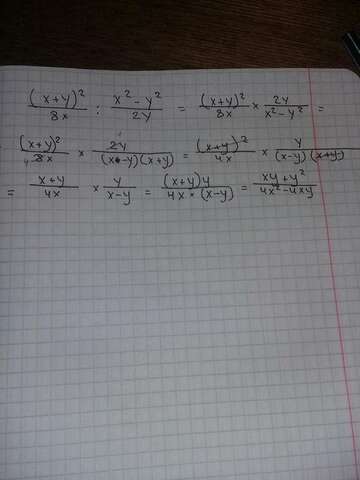 (x+y)²/8x : x²-y²/2y = (x+y)²/8x × 2y/x²-y² =
(x+y)²/8x × 2y/(x-y)(x+y) = (x+y)²/4x × y/(x-y)(x+y)
= x+y/4x × y/x-y = (x+y)y/4x×(x-y) = xy+y²/4x²-4xy